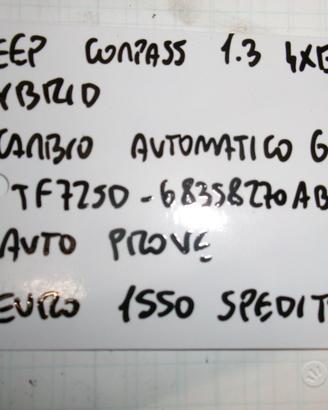 EEP COMPASS 1.3 4XE
YBRID
CAMBIO AUTOMATICO 6
TF72SD-68358270AB
AUTO PROVE
EURO 1550 SPEDIT